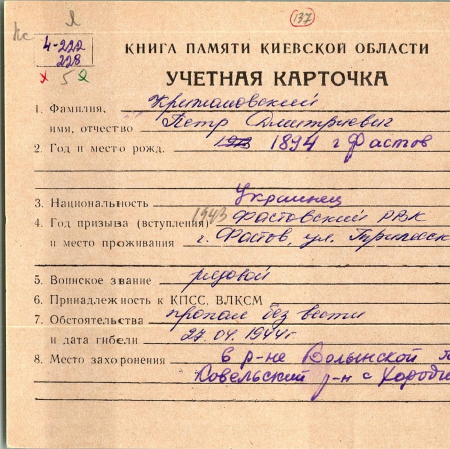 137
4-222
228
х 5 2
КНИГА ПАМЯТИ КИЕВСКОЙ ОБЛАСТИ
УЧЕТНАЯ КАРТОЧКА
1. Фамилия, Крижановский
имя, отчество Петр Дмитриевич
2. Год и место рожд. 1894 г Фастов
3. Национальность Украинец
4. Год призыва (вступления) 1943 Фастовский РВК
и место проживания г. Фастов, ул.
5. Воинское звание рядовой
6. Принадлежность к КПСС, ВЛКСМ
7. Обстоятельства пропал без вести
и дата гибели 27.04.1944г
8. Место захоронения в р-не Волынской
Ковельский р-н с